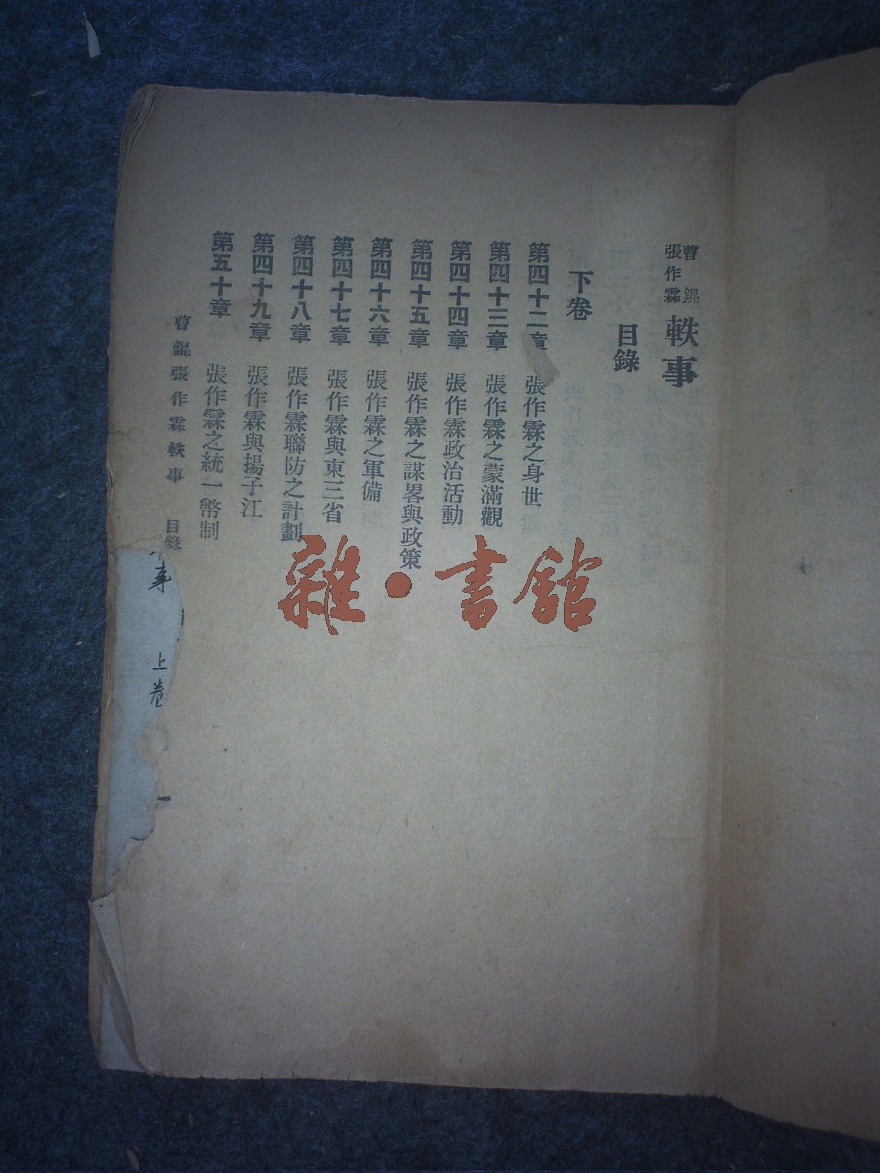 曹錕
張作霖
軼事
目錄
下卷
第四十二章 張作霖之身世
第四十三章 張作霖之蒙滿觀
第四十四章 張作霖政治活動
第四十五章 張作霖之謀畧與政策
第四十六章 張作霖之軍備
第四十七章 張作霖與東三省
第四十八章 張作霖聯防之計劃
第四十九章 張作霖與揚子江
第五十章 張作霖之統一幣制
曹錕張作霖軼事 目錄
事 上卷
一
雜·書館